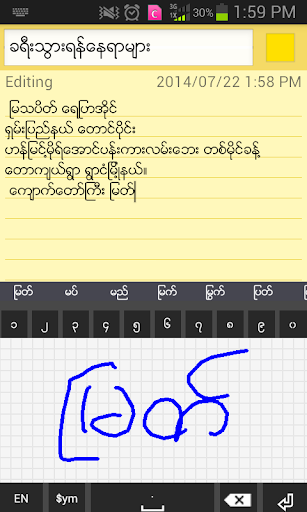 3G 30% 1:59 PM
ခရီးသွားရန်နေရာများ
Editing 2014/07/22 1:58 PM
မြသပိတ် ရေပြာအိုင်
ရှမ်းပြည်နယ် တောင်ပိုင်း
ဟန်မြင့်မိုရ်အောင်ပန်းကားလမ်းဘေး တစ်မိုင်ခန့်
တောကျယ်ရွာ ရွာငံမြို့နယ်။
ကျောက်တော်ကြီး မြတ်
မြတ် မပ် မည် မြက် မြွက် ပြတ်
၁ ၂ ၃ ၄ ၅ ၆ ၇ ၈ ၉ ၀
မြတ်
EN $ym .